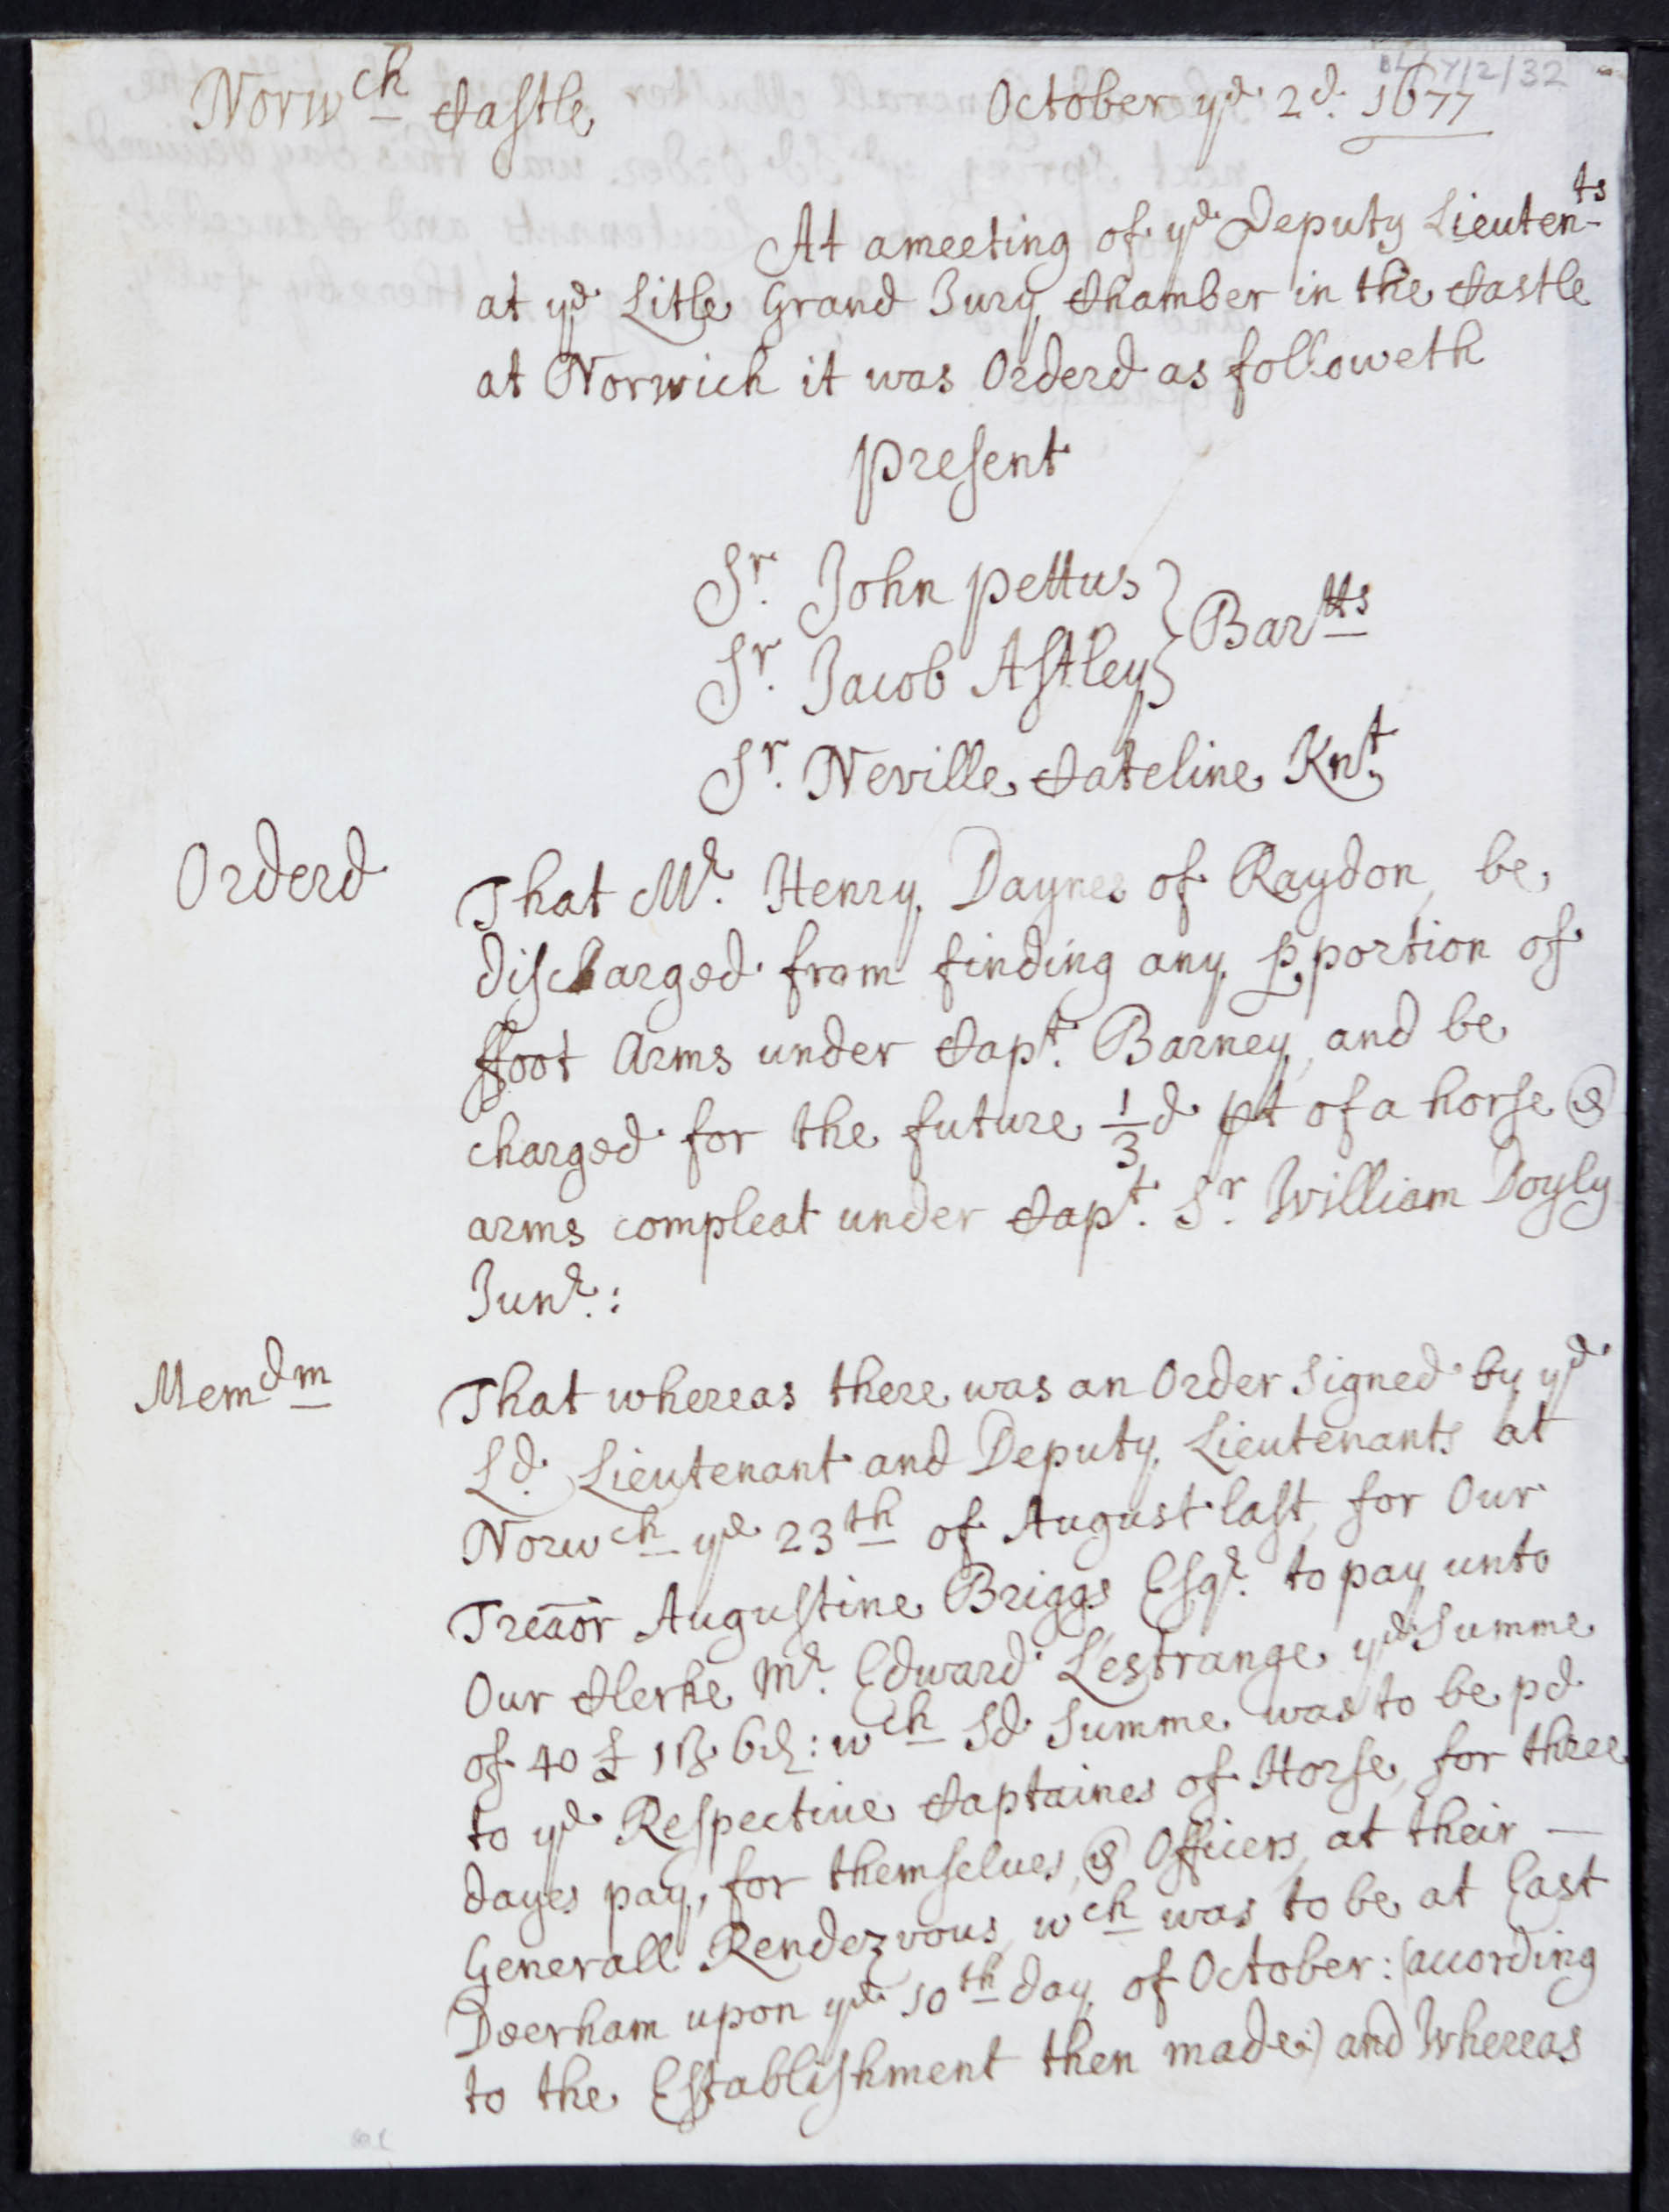 Norw^ch Castle October y^e 2^d. 1677
At a meeting of y^e Deputy Lieuten^ts
at y^e Litle Grand Jury Chamber in the Castle
at Norwich it was Orderd as followeth
Present
S^r. John Pettus
S^r. Jacob Astley } Bar^tts
S^r. Neville Cateline Kn^t
Orderd That M^r. Henry Daynes of Raydon, be
discharged from finding any pportion of
ffoot Arms under Capt. Barney, and be
charged for the future 1/3 d pt of a horse &
arms compleat under Capt. S^r. William Doyly
Jun^r.:
Mem^dm That whereas there was an Order Signed by y^e
L^d. Lieutenant and Deputy Lieutenants at
Norw^ch y^e 23^th of August last, for Our
Treāor Augustine Briggs Esq^r. to pay unto
Our Clerke M^r. Edward Lestrange y^e Summe
of 40 £ 1s 6d: w^ch Sd Summe was to be pd
to y^e Respective Captaines of Horse, for three
dayes pay, for themselves, & Officers, at their —
Generall Rendezvous, w^ch was to be at East
Deerham upon y^e 10^th day of October: (according
to the Establishment then made:) and Whereas